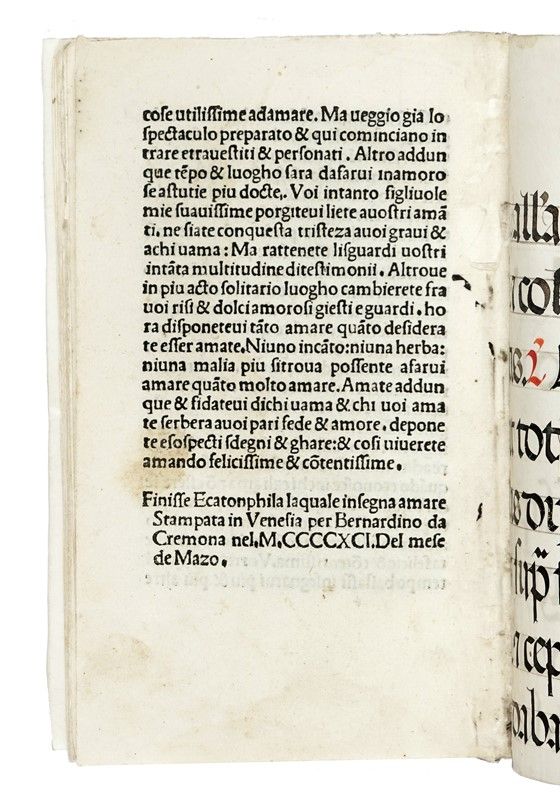 coſe utiliſſime adamare. Ma ueggio gia lo
ſpectaculo preparato & qui cominciano in
trare etraueſtiti & perſonati. Altro addun
que tẽpo & luogho ſara dafarui inamoro
ſe aſtutie piu docte. Voi intanto figliuole
mie ſuauiſſime porgiteui liete auoſtri amã
ti. ne ſiate conqueſta triſteza auoi graui &
achi uama: Ma rattenete liſguardi uoſtri
intãta multitudine diteſtimonii. Altroue
in piu acto ſolitario luogho cambierete fra
uoi riſi & dolci amoroſi gieſti e guardi. ho
ra diſponeteui tãto amare quãto deſidera
te eſſer amate. Niuno incãto: niuna herba:
niuna malia piu ſitroua poſſente afarui
amare quãto molto amare. Amate addun
que & fidateui dichi uama & chi uoi ama
te ſerbera auoi pari fede & amore. depone
te eſoſpecti ſdegni & ghare: & coſi uiuerete
amando feliciſſime & cõtentiſſime.
Finiſſe Ecatonphila laquale inſegna amare
Stampata in Veneſia per Bernardino da
Cremona nel. M.CCCCXCI. Del meſe
de Mazo.